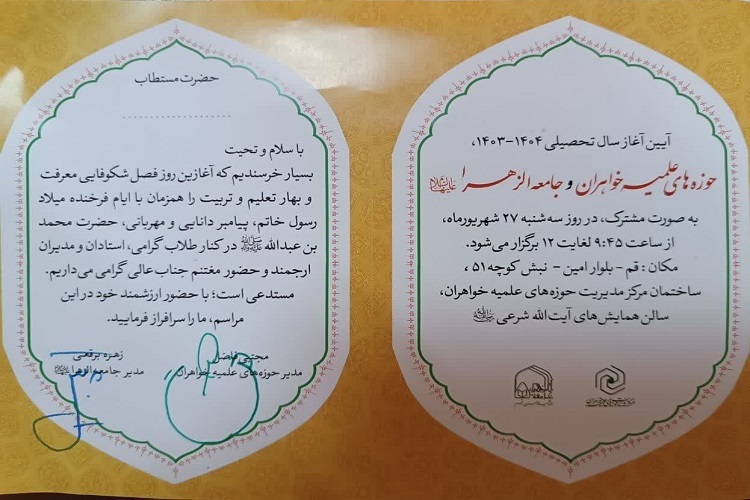 آیین آغاز سال تحصیلی ۱۴۰۴-۱۴۰۳،
حوزه‌های علمیه خواهران و جامعه الزهرا
به صورت مشترک، در روز سه‌شنبه ۲۷ شهریورماه،
از ساعت ۹:۴۵ لغایت ۱۲ برگزار می‌شود.
مکان: قم - بلوار امین - نبش کوچه ۵۱،
ساختمان مرکز مدیریت حوزه‌های علمیه خواهران،
سالن همایش‌های آیت الله شرعی
حضرت مستطاب
....................
با سلام و تحیت
بسیار خرسندیم که آغازین روز فصل شکوفایی معرفت
و بهار تعلیم و تربیت را همزمان با ایام فرخنده میلاد
رسول خاتم، پیامبر دانایی و مهربانی، حضرت محمد
بن عبدالله ﷺ در کنار طلاب گرامی، استادان و مدیران
ارجمند و حضور مغتنم جناب‌عالی گرامی می‌داریم.
مستدعی است؛ با حضور ارزشمند خود در این
مراسم، ما را سرافراز فرمایید.
مجتبی فاضل
مدیر حوزه‌های علمیه خواهران
زهره برقعی
مدیر جامعه الزهرا